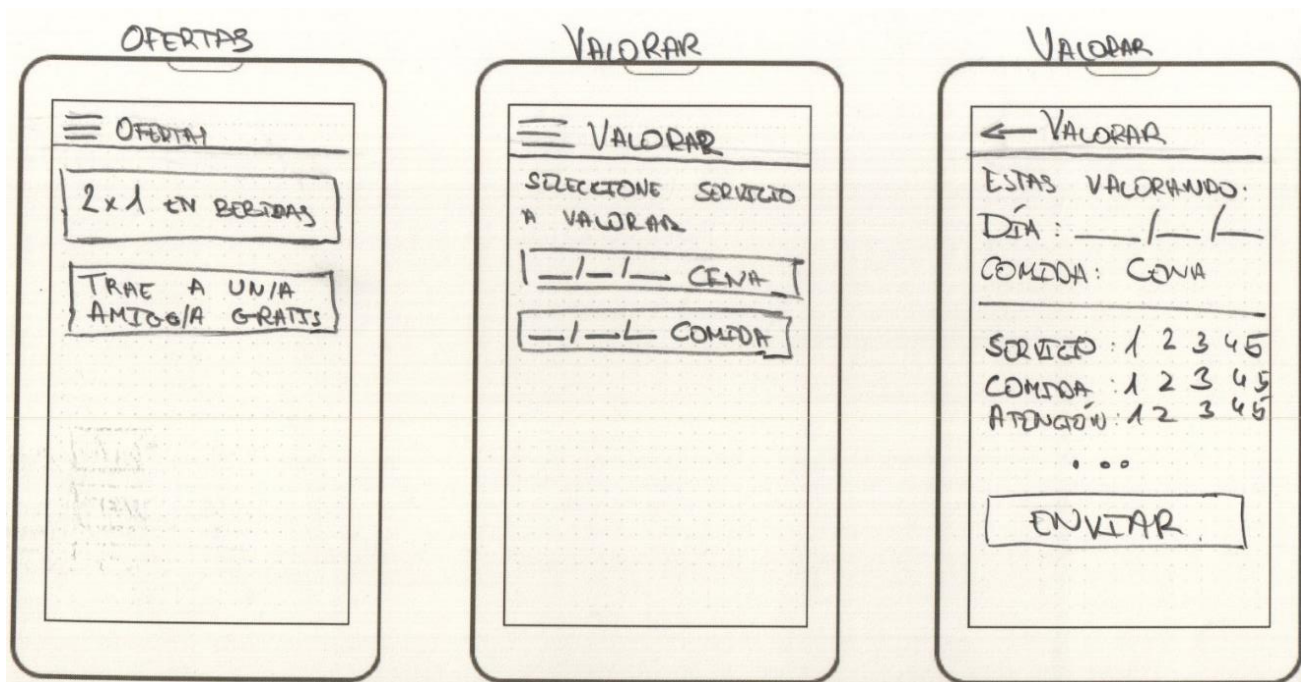 OFERTAS
OFERTAS
2x1 EN BEBIDAS
TRAE A UN/A
AMIGO/A GRATIS
VALORAR
VALORAR
SELECCIONE SERVICIO
A VALORAR
__/__/__ CENA
__/__/__ COMIDA
VALORAR
← VALORAR
ESTAS VALORANDO:
DÍA: __/__/__
COMIDA: CENA
SERVICIO: 1 2 3 4 5
COMIDA: 1 2 3 4 5
ATENCIÓN: 1 2 3 4 5
...
ENVIAR